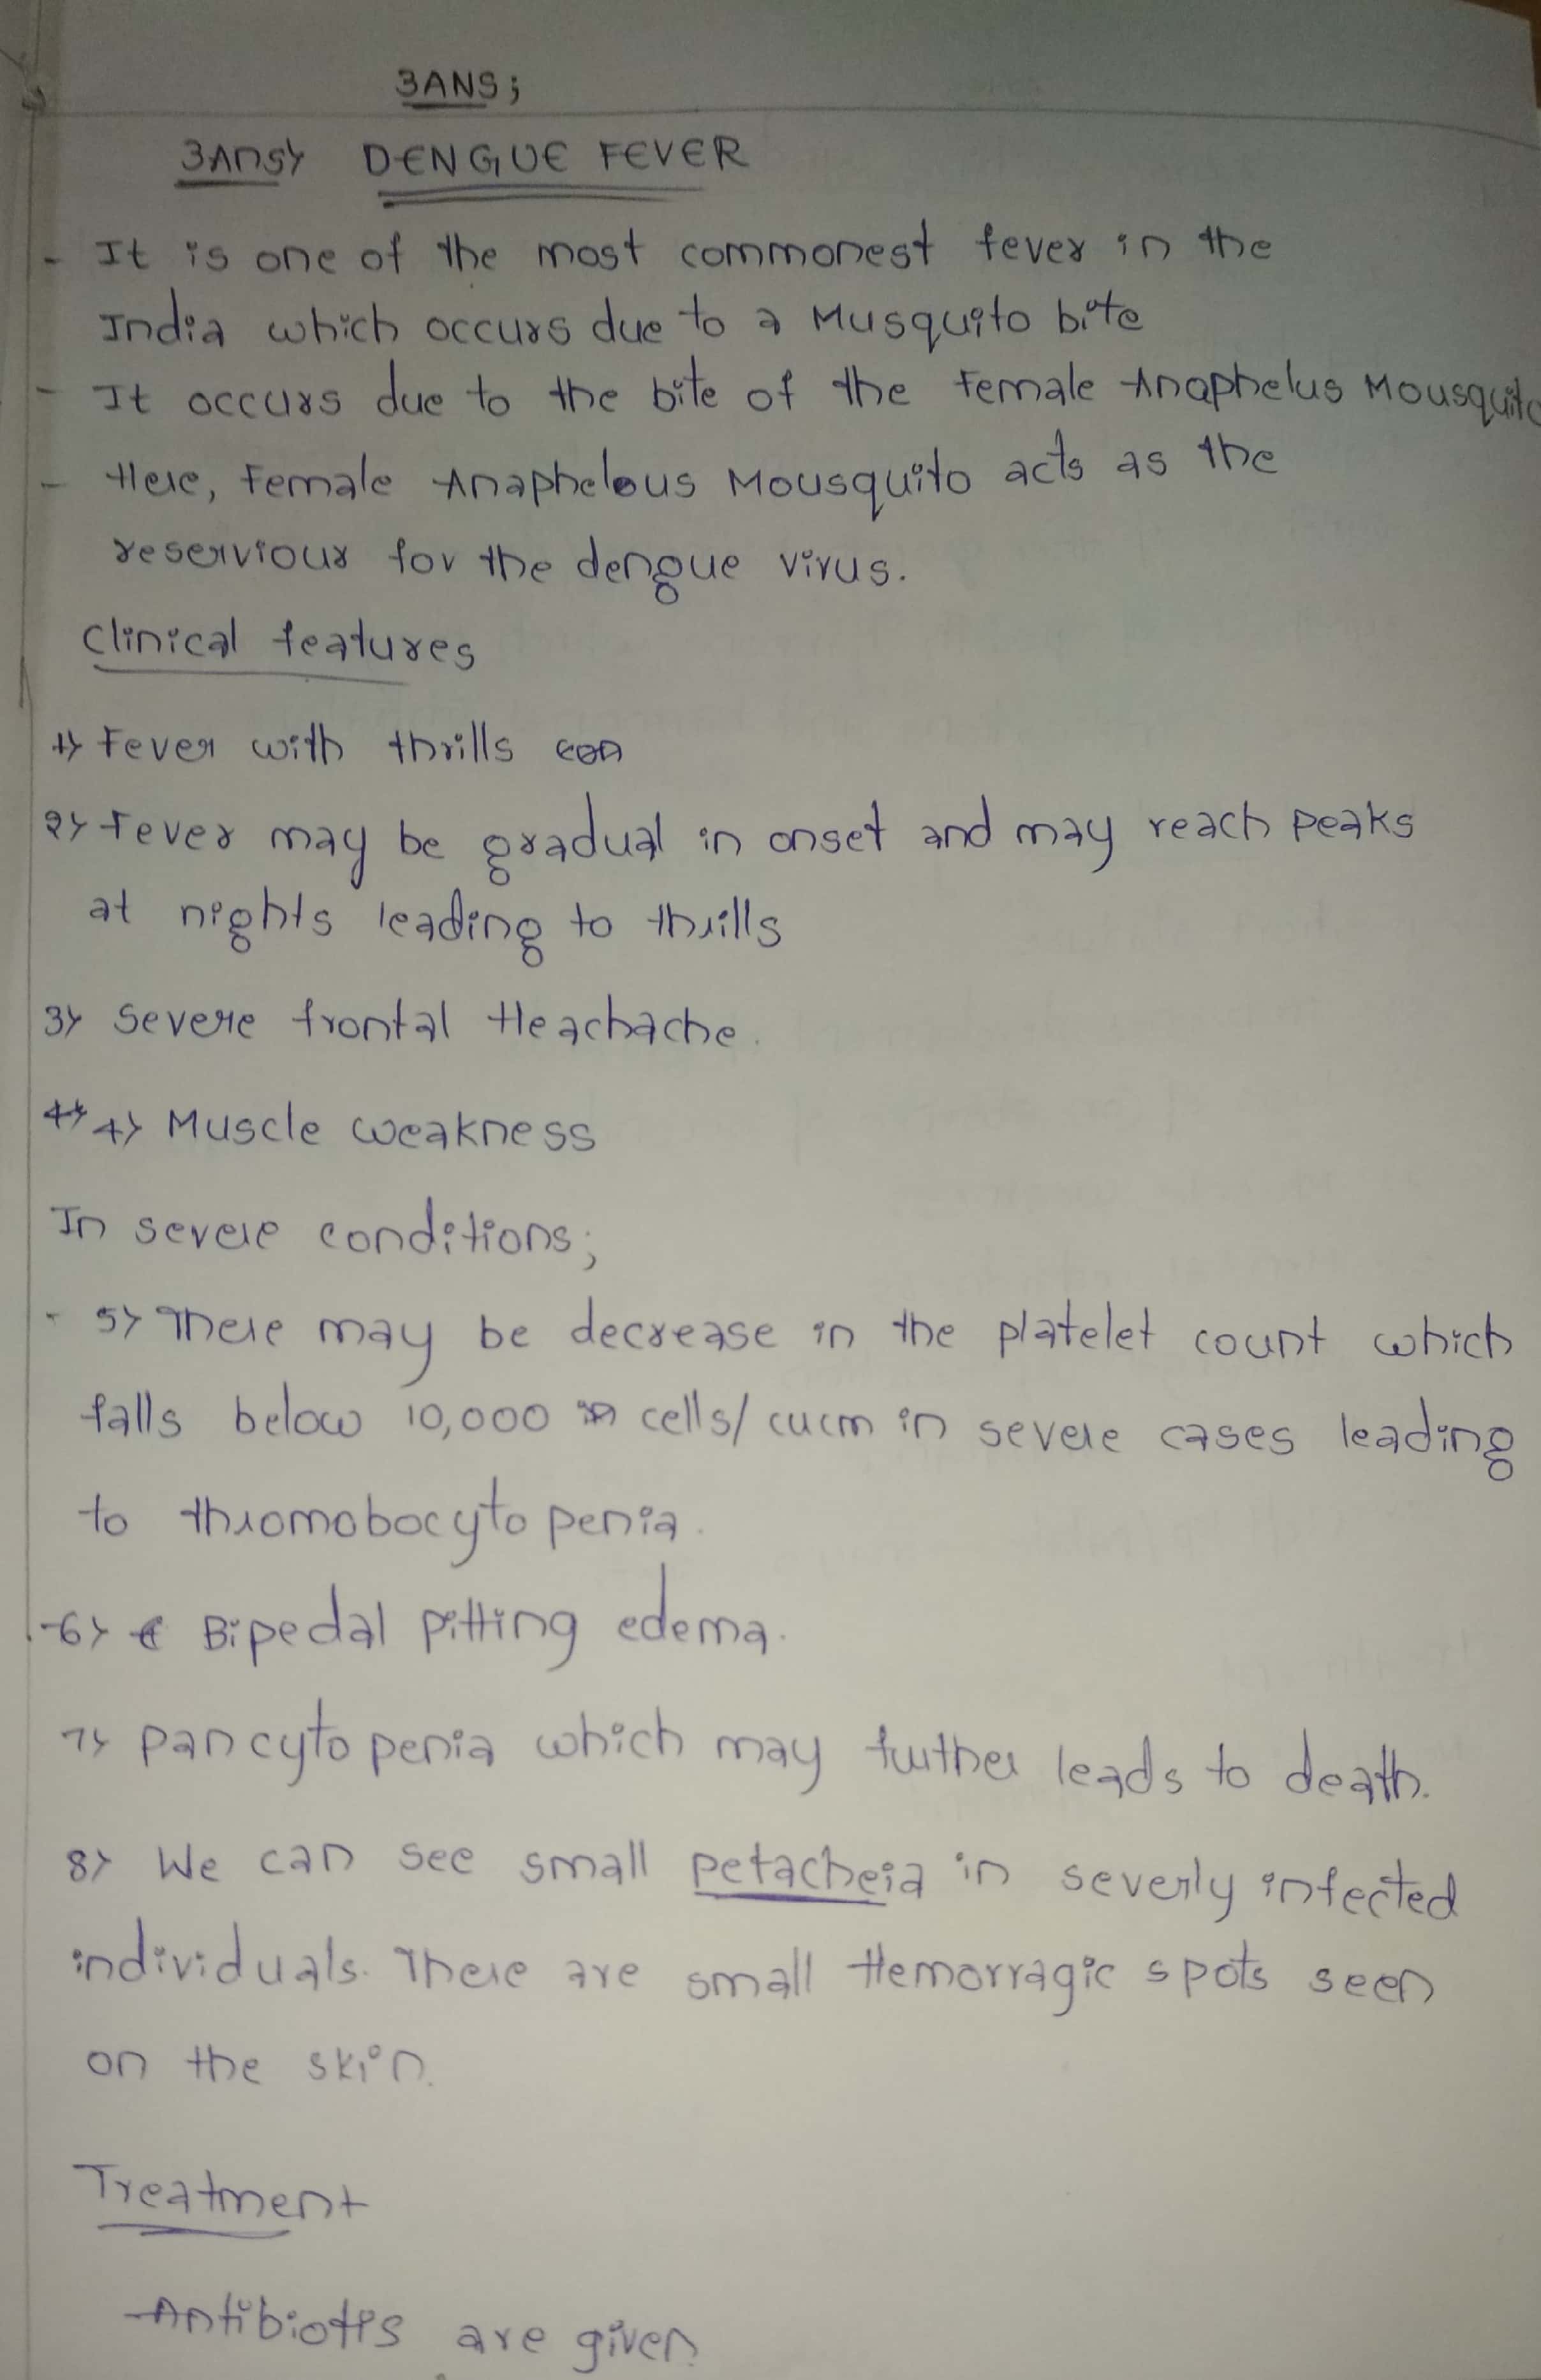 3ANS;
3Ans> DENGUE FEVER
- It is one of the most commonest fever in the
India which occurs due to a Musquito bite
- It occurs due to the bite of the Female Anaphelus Mousquito
- Here, Female Anaphelous Mousquito acts as the
reserviour for the dengue virus.
Clinical features
1> Fever with thrills
2> Fever may be gradual in onset and may reach peaks
at nights leading to thrills
3> Severe frontal Heachache.
4> Muscle weakness
In severe conditions;
- 5> There may be decrease in the platelet count which
falls below 10,000 cells/cucm in severe cases leading
to thromobocytopenia.
-6> Bipedal pitting edema.
7> pancytopenia which may further leads to death.
8> We can see small petacheia in severly infected
individuals. There are small Hemorragic spots seen
on the skin.
Treatment
Antibiotis are given